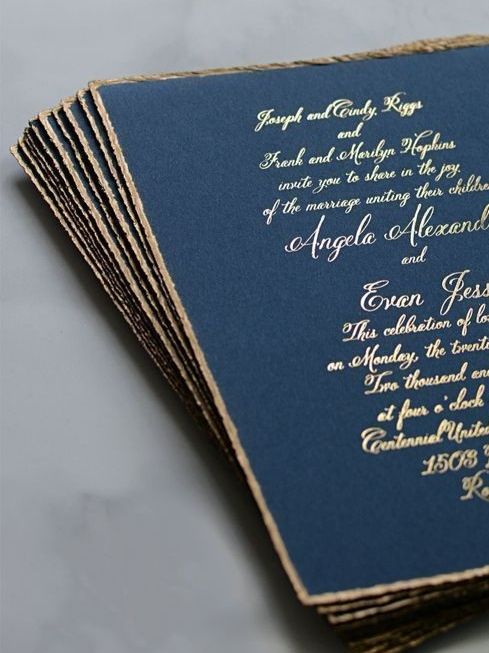 Joseph and Cindy Riggs
and
Frank and Marilyn Hopkins
invite you to share in the joy
of the marriage uniting their children
Angela Alexand
and
Evan Jess
This celebration of lo
on Monday, the twenti
Two thousand an
at four o'clock
Centennial United
1503
Ro